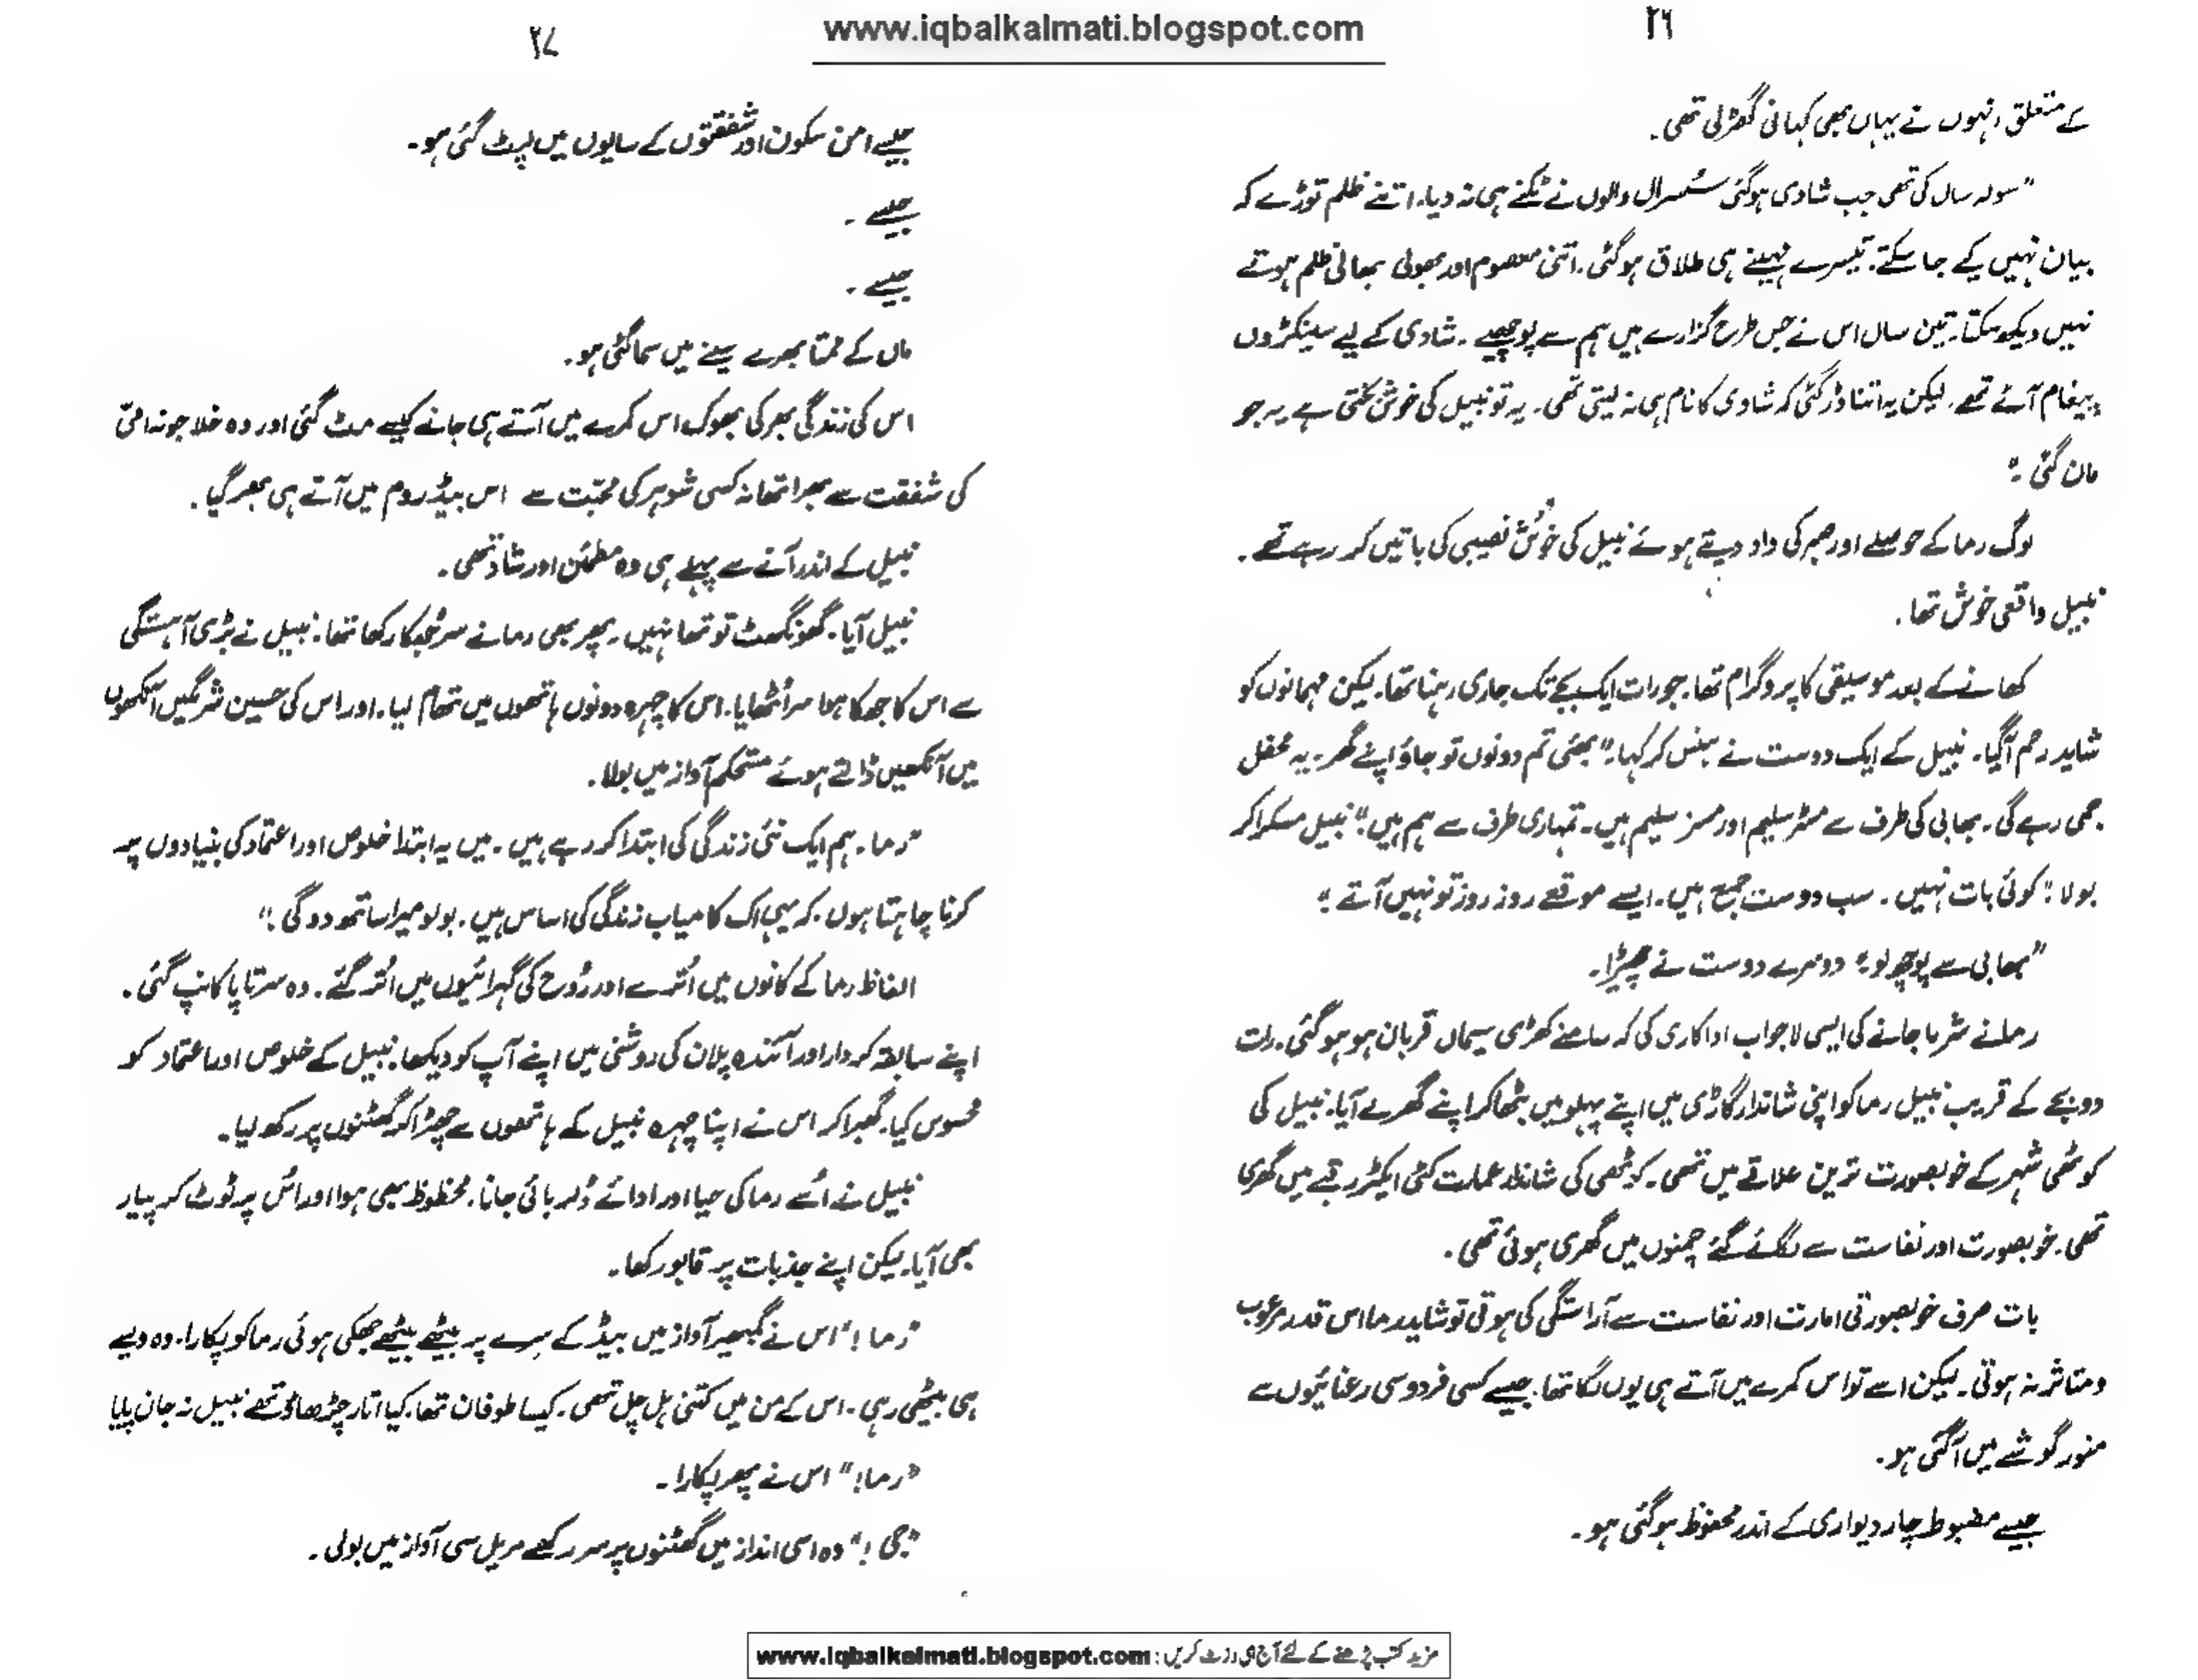 www.iqbalkalmati.blogspot.com
۲۶
کے متعلق انہوں نے یہاں بھی کہانی گھڑلی تھی۔
"سولہ سال کی تھی جب شادی ہوگئی سُسرال والوں نے ٹکنے ہی نہ دیا۔ اتنے ظلم توڑے کہ
بیان نہیں کیے جا سکتے۔ تیسرے مہینے ہی طلاق ہوگئی۔ اتنی معصوم اور بھولی بھالی ظلم ہوتے
نہیں دیکھ سکتا۔ تین سال اس نے جس طرح گزارے ہیں ہم سے پوچھیے۔ شادی کے لیے سینکڑوں
پیغام آئے تھے۔ لیکن یہ اتنا ڈر گئی کہ شادی کا نام ہی نہ لیتی تھی۔ یہ تو نبیل کی خوش بختی ہے یہ جو
مان گئی۔"
لوگ رما کے حوصلے اور صبر کی داد دیتے ہوئے نبیل کی خوش نصیبی کی باتیں کر رہے تھے۔
نبیل واقعی خوش تھا۔
کھانے کے بعد موسیقی کا پروگرام تھا۔ جو رات ایک بجے تک جاری رہنا تھا۔ لیکن مہمانوں کو
شاید رحم آگیا۔ نبیل کے ایک دوست نے ہنس کر کہا۔ "بھئی تم دونوں تو جاؤ اپنے گھر۔ یہ محفل
جمی رہے گی۔ بھابی کی طرف سے مسٹر سلیم اور مسز سلیم ہیں۔ تمہاری طرف سے ہم ہیں" نبیل مسکرا کر
بولا "کوئی بات نہیں۔ سب دوست جمع ہیں۔ ایسے موقعے روز روز تو نہیں آتے"
"بھابی سے پوچھ لو" دوسرے دوست نے چھیڑا۔
رما نے شرما جانے کی ایسی لاجواب اداکاری کی کہ سامنے کھڑی سیماں قربان ہو ہو گئی۔ رات
دو بجے کے قریب نبیل رما کو اپنی شاندار گاڑی میں اپنے پہلو میں بٹھا کر اپنے گھر لے آیا۔ نبیل کی
کوٹھی شہر کے خوبصورت ترین علاقے میں تھی۔ کوٹھی کی شاندار عمارت کئی ایکڑ رقبے میں گھری
تھی۔ خوبصورت اور نفاست سے لگائے گئے چمنوں میں گھری ہوئی تھی۔
بات صرف خوبصورتی امارت اور نفاست سے آراستگی کی ہوتی تو شاید رما اس قدر مرعوب
و متاثر نہ ہوتی۔ لیکن اسے تو اس کمرے میں آتے ہی یوں لگا تھا۔ جیسے کسی فردوسی رعنائیوں سے
منور گوشے میں آگئی ہو۔
جیسے مضبوط چار دیواری کے اندر محفوظ ہوگئی ہو۔
۲۷
جیسے امن سکون اور شفقتوں کے سایوں میں لپٹ گئی ہو۔
جیسے۔
جیسے۔
ماں کے ممتا بھرے سینے میں سما گئی ہو۔
اس کی زندگی بھر کی بھوک اس کمرے میں آتے ہی جانے کیسے مٹ گئی اور وہ خلا جو نہ امی
کی شفقت سے بھرا تھا نہ کسی شوہر کی محبّت سے اس بیڈ روم میں آتے ہی بھر گیا۔
نبیل کے اندر آنے سے پہلے ہی وہ مطمئن اور شاد تھی۔
نبیل آیا۔ گھونگھٹ تو تھا نہیں۔ پھر بھی رما نے سر جُھکا رکھا تھا۔ نبیل نے بڑی آہستگی
سے اس کا جھکا ہوا سر اُٹھایا۔ اس کا چہرہ دونوں ہاتھوں میں تھام لیا۔ اور اس کی حسین شرمگیں آنکھوں
میں آنکھیں ڈالتے ہوئے مستحکم آواز میں بولا۔
"رما۔ ہم ایک نئی زندگی کی ابتدا کر رہے ہیں۔ میں یہ ابتدا خلوص اور اعتماد کی بنیادوں پہ
کرنا چاہتا ہوں۔ کہ یہی اک کامیاب زندگی کی اساس ہیں۔ بولو میرا ساتھ دو گی۔"
الفاظ رما کے کانوں میں اُترے اور رُوح کی گہرائیوں میں اُتر گئے۔ وہ سرتاپا کانپ گئی۔
اپنے سابقہ کردار اور آئندہ پلان کی روشنی میں اپنے آپ کو دیکھا۔ نبیل کے خلوص اور اعتماد کو
محسوس کیا۔ گھبرا کر اس نے اپنا چہرہ نبیل کے ہاتھوں سے چھڑا کر گھٹنوں پر رکھ لیا۔
نبیل نے اُسے رما کی حیا اور ادائے دُلربائی جانا۔ محظوظ بھی ہوا اور اس پر ٹوٹ کر پیار
بھی آیا۔ لیکن اپنے جذبات پر قابو رکھا۔
"رما!" اس نے گمبھیر آواز میں بیڈ کے سرے پر بیٹھے بیٹھے جھکی ہوئی رما کو پکارا۔ وہ ویسے
ہی بیٹھی رہی۔ اس کے من میں کتنی ہل چل تھی۔ کیسا طوفان تھا۔ کیا اتار چڑھاؤ تھے نبیل نہ جان پایا
"رما!" اس نے پھر پکارا۔
"جی!" وہ اسی انداز میں گھٹنوں پر سر رکھے مریل سی آواز میں بولی۔
مزید کتب پڑھنے کے لئے آج ہی وزٹ کریں: www.iqbalkalmati.blogspot.com